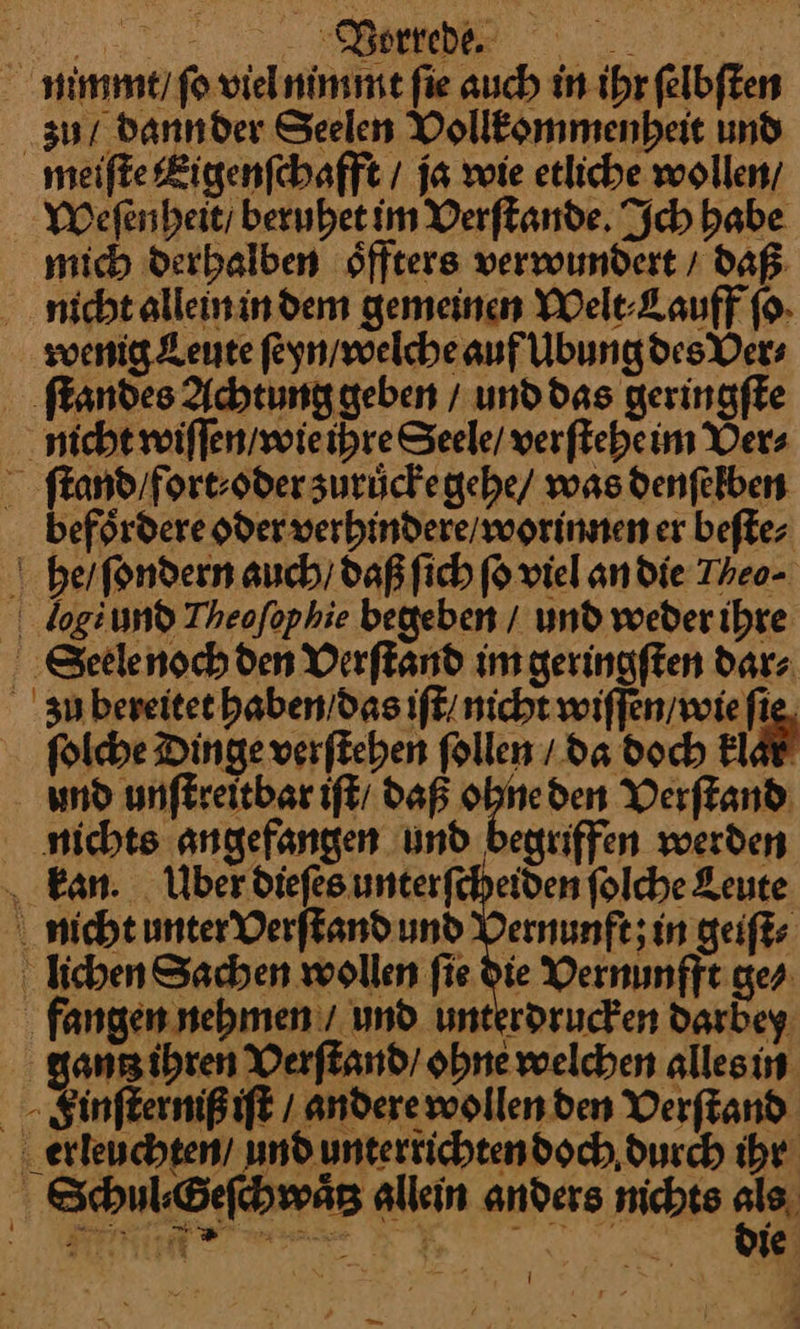 Vorrede.
nimmt/ ſo viel nimmt ſie auch in ihr ſelbſten
zu / dann der Seelen Vollkommenheit und
meiſte Eigenſchafft / ja wie etliche wollen/
Weſenheit/ beruhet im Verſtande. Ich habe
mich derhalben oͤffters verwundert / daß
nicht allein in dem gemeinen Welt-Lauff ſo
wenig Leute ſeyn/welche auf Ubung des Ver-
ſtandes Achtung geben / und das geringſte
nicht wiſſen/wie ihre Seele/ verſtehe im Ver-
ſtand/fort-oder zuruͤcke gehe/ was denſelben
befoͤrdere oder verhindere/worinnen er beſte-
he/ſondern auch/ daß ſich ſo viel an die Theo-
logi und Theoſophie begeben / und weder ihre
Seele noch den Verſtand im geringſten dar-
zu bereitet haben/das iſt/ nicht wiſſen/wie ſie
ſolche Dinge verſtehen ſollen / da doch klar
und unſtreitbar iſt/ daß ohne den Verſtand
nichts angefangen und begriffen werden
kan. Uber dieſes unterſcheiden ſolche Leute
nicht unter Verſtand und Vernunft; in geiſt-
lichen Sachen wollen ſie die Vernunfft ge-
fangen nehmen / und unterdrucken darbey
gantz ihren Verſtand/ ohne welchen alles in
Finſterniß iſt / andere wollen den Verſtand
erleuchten/ und unterrichten doch durch ihr
Schul-Geſchwaͤtz allein anders nichts als
die